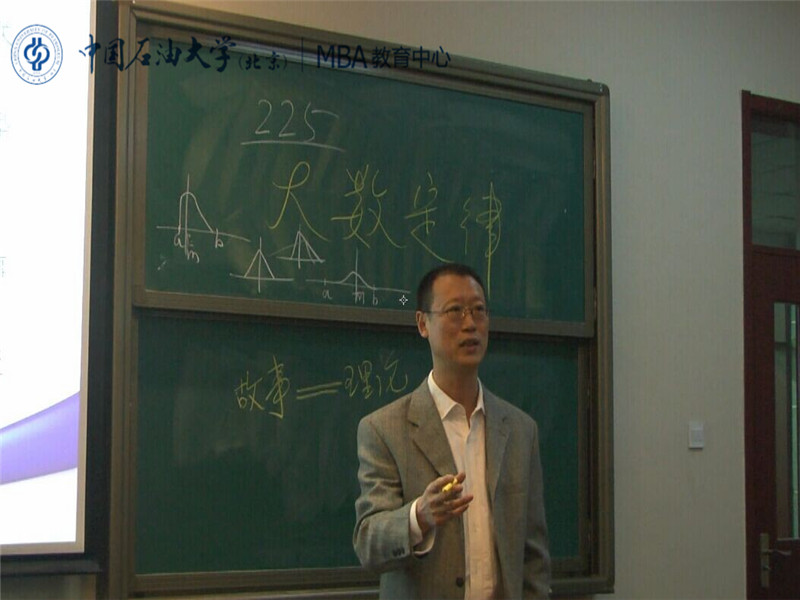 中国石油大学(北京) | MBA教育中心
225
大数定律
a m b
a m b
故事=理论